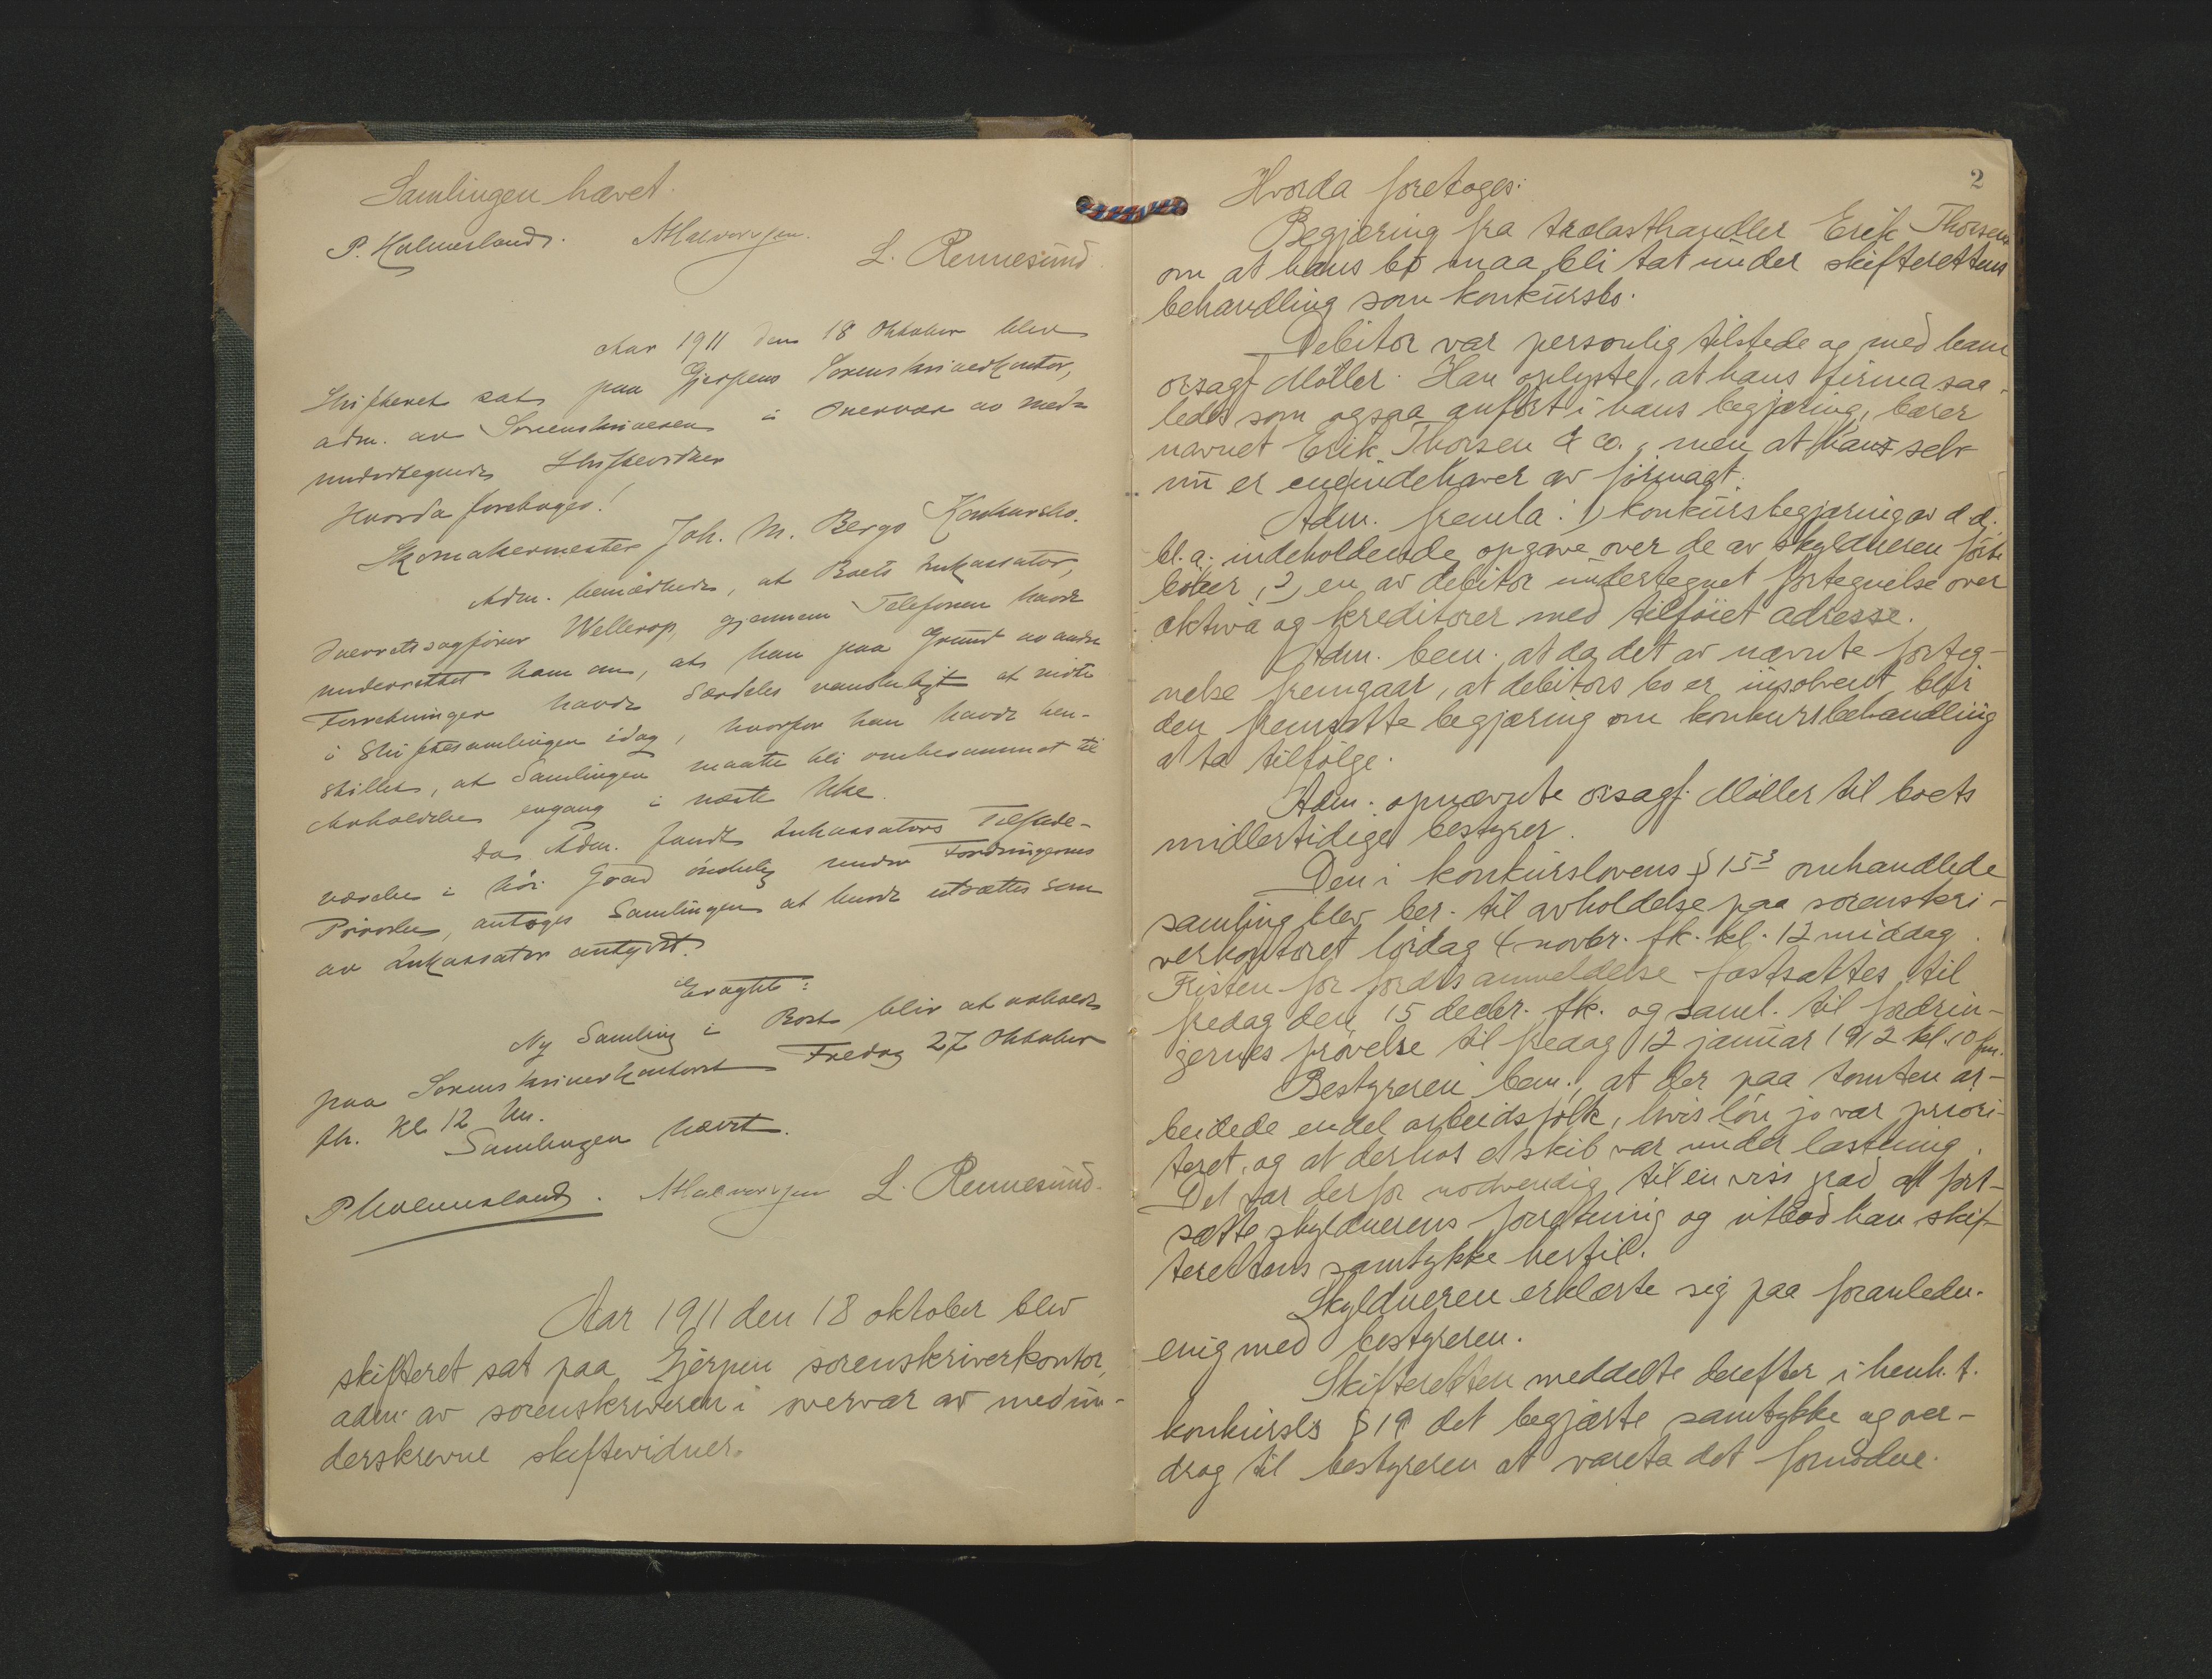 Samlingen hævet.
P. Holmesland. AHalvorsen.
L. Rennesund
Aar 1911 den 18 Oktober blev
Skifteret sat paa Gjerpens Sorenskriverkontor,
adm. av Sorenskriveren i Overvær av med-
undertegnede Skiftevidner
Hvorda foretoges!
Skomakermester Joh. M. Bergs Konkursbo.
Adm. bemærkede, at Boets Inkassator,
Overretssagfører Wellerop, gjennem Telefonen havde
underrettet ham om, at han paa Grund av andre
Forretninger havde særdeles vanskeligt at møte
i Skiftesamlingen idag, hvorfor han havde hen-
stillet, at Samlingen maatte bli ombesammet til
Avholdelse engang i næste Uke.
Da Adm. fandt Inkassators Tilstede-
værelse i høi Grad ønskelig under Fordringernes
Prøvelse, antoges Samlingen at burde utsættes som
av Inkassator antydet.
Eragtet:
Ny Samling i Boet blir at avholde
paa Sorenskriverkontoret Fredag 27 Oktober
fk. Kl 12 Mi.
Samlingen hævet.
P Holmesland. AHalvorsen L. Rennesund.
Aar 1911 den 18 oktober blev
skifteret sat paa Gjerpen sorenskriverkontor,
adm. av sorenskriveren i overvær av medun-
derskrevne skiftevidner.
2
Hvorda foretoges:
Begjæring fra trælasthandler Erik Thorsen
om at hans bo maa bli tat under skifterettens
behandling som konkursbo.
Debitor var personlig tilstede og med ham
orsagf. Møller. Han oplyste, at hans firma saa-
ledes som ogsaa anført i hans begjæring, bærer
navnet Erik Thorsen & Co., men at han selv
nu er eneindehaver av firmaet.
Adm. fremla: 1) konkursbegjæring av d.d.
bl.a. indeholdende opgave over de av skyldneren førte
bøker, 2) en av debitor undertegnet fortegnelse over
aktiva og kreditorer med tilføiet adresse.
Adm. bem. at da det av nævnte forteg-
nelse fremgaar, at debitors bo er insolvent, blir
den fremsatte begjæring om konkursbehandling
at ta tilfølge.
Adm. opnævnte orsagf. Møller til boets
midlertidige bestyrer.
Den i konkurslovens § 15³ omhandlede
samling blev ber. til avholdelse paa sorenskri-
verkontoret lørdag 4 novbr. fk. kl. 12 middag.
Fristen for fordrs anmeldelse fastsattes til
fredag den 15 decbr. fk. og saml. til fordrin-
gernes prøvelse til fredag 12 januar 1912 kl. 10 fm.
Bestyreren bem., at der paa tomten ar-
beidede endel arbeidsfolk, hvis løn jo var priori-
teret, og at derhos et skib var under lastning.
Det var derfor nødvendig til en viss grad at fort-
sætte skyldnerens forretning og utbad han skif-
terettens samtykke hertil.
Skyldneren erklærte sig paa foranledn.
enig med bestyreren.
Skifteretten meddelte derefter i henh. t.
konkursls § 19 det begjærte samtykke og over-
drog til bestyreren at vareta det fornødne.